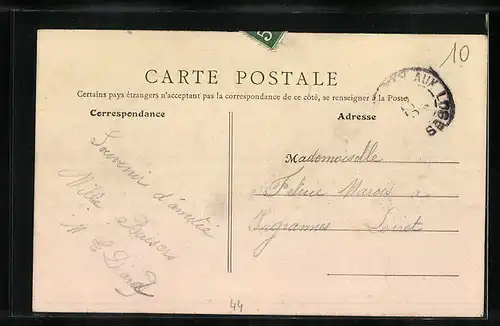 5
10
CARTE POSTALE
Certains pays étrangers n'acceptant pas la correspondance de ce côté, se renseigner à la Poste
Correspondance
Adresse
AUX LOGES
Souvenir d'amitié
Mille Baisers
M E Diard
Mademoiselle
Marois a
Ingrannes Loiret
44